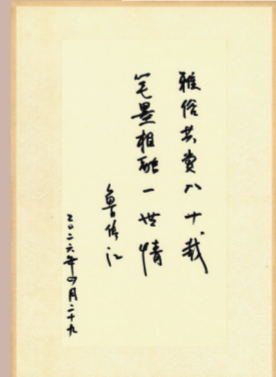 雅俗共赏八十载
笔墨相融一世情
鲁
二〇二六年四月二十九